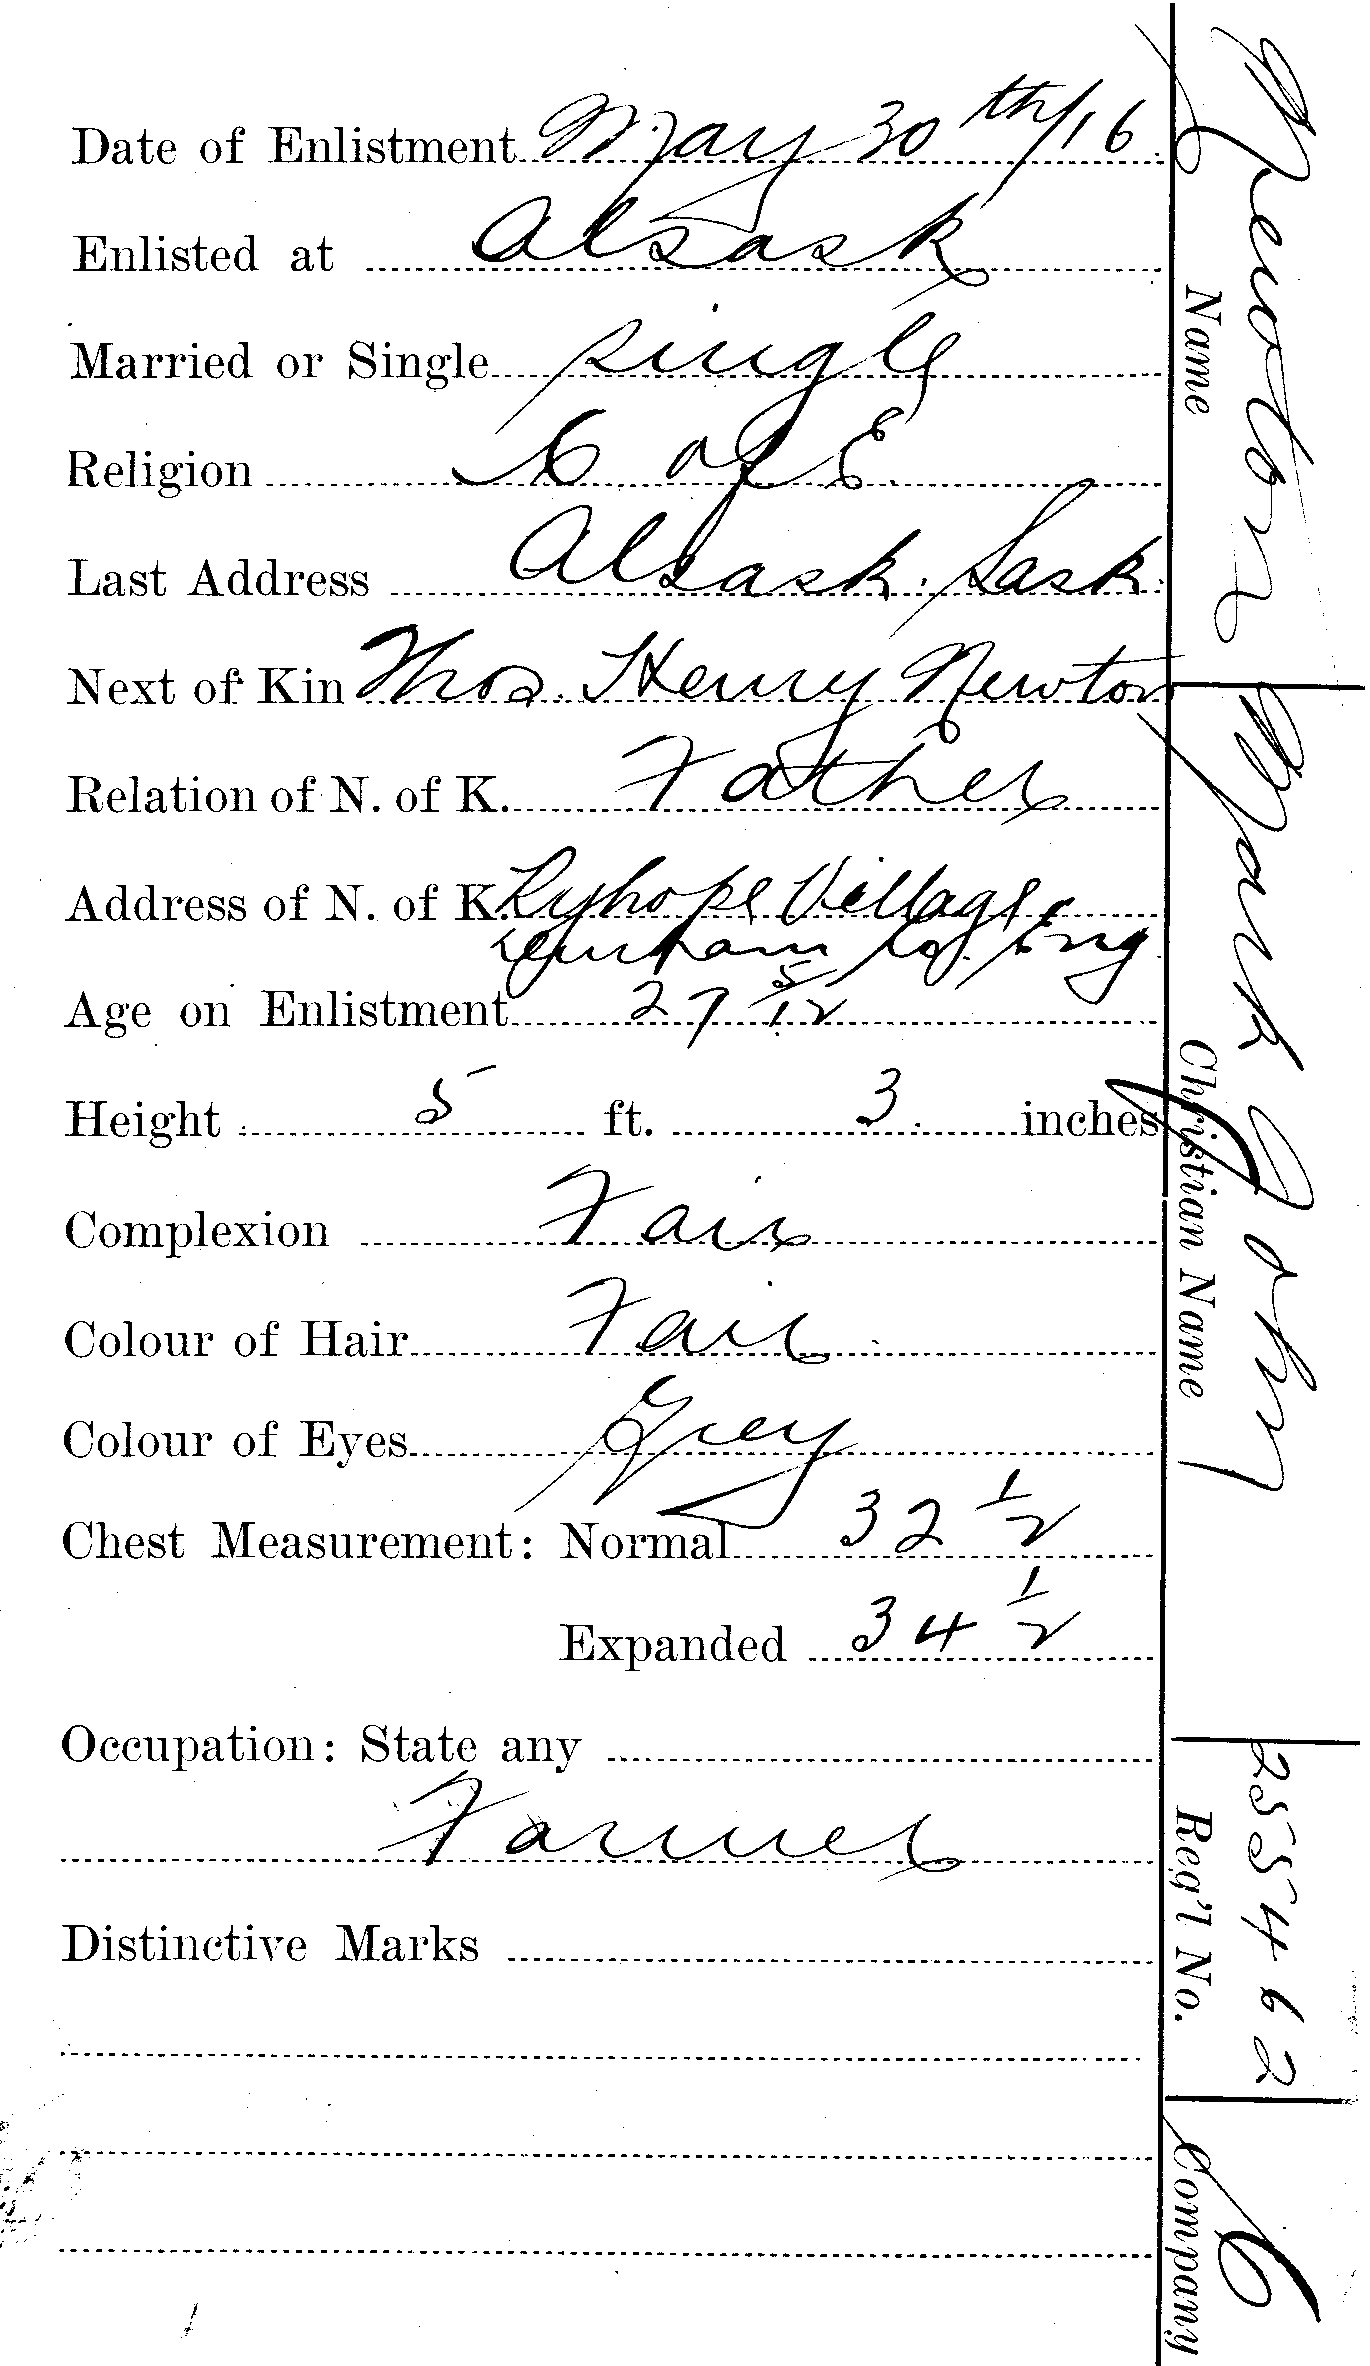 Date of Enlistment May 30th/16
Enlisted at Alsask
Married or Single single
Religion C of E.
Last Address Alsask. Sask.
Next of Kin Thos. Henry Newton
Relation of N. of K. Father
Address of N. of K. Ryhope Village
Durham Co. Eng.
Age on Enlistment 27 5/12
Height 5 ft. 3 inches
Complexion Fair
Colour of Hair Fair
Colour of Eyes Grey
Chest Measurement: Normal 32 1/2
Expanded 34 1/2
Occupation: State any
Farmer
Distinctive Marks
Newton
Name
Mark John
Christian Name
255462
Reg'l No.
C
Company